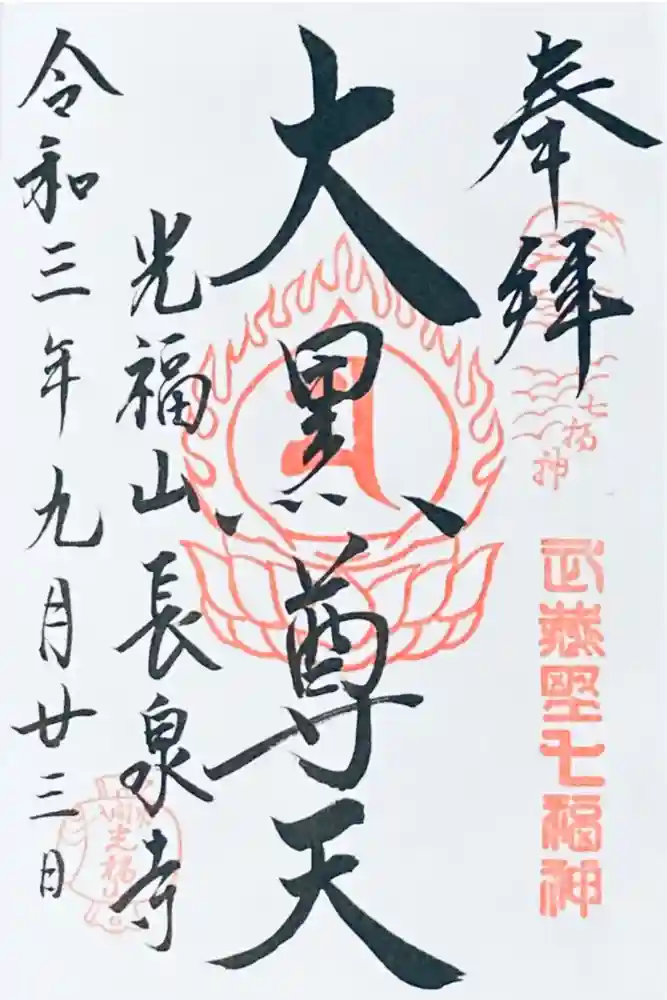 奉拝
七福神
武蔵野七福神
大黒尊天
光福山長泉寺
令和三年九月廿三日
光福